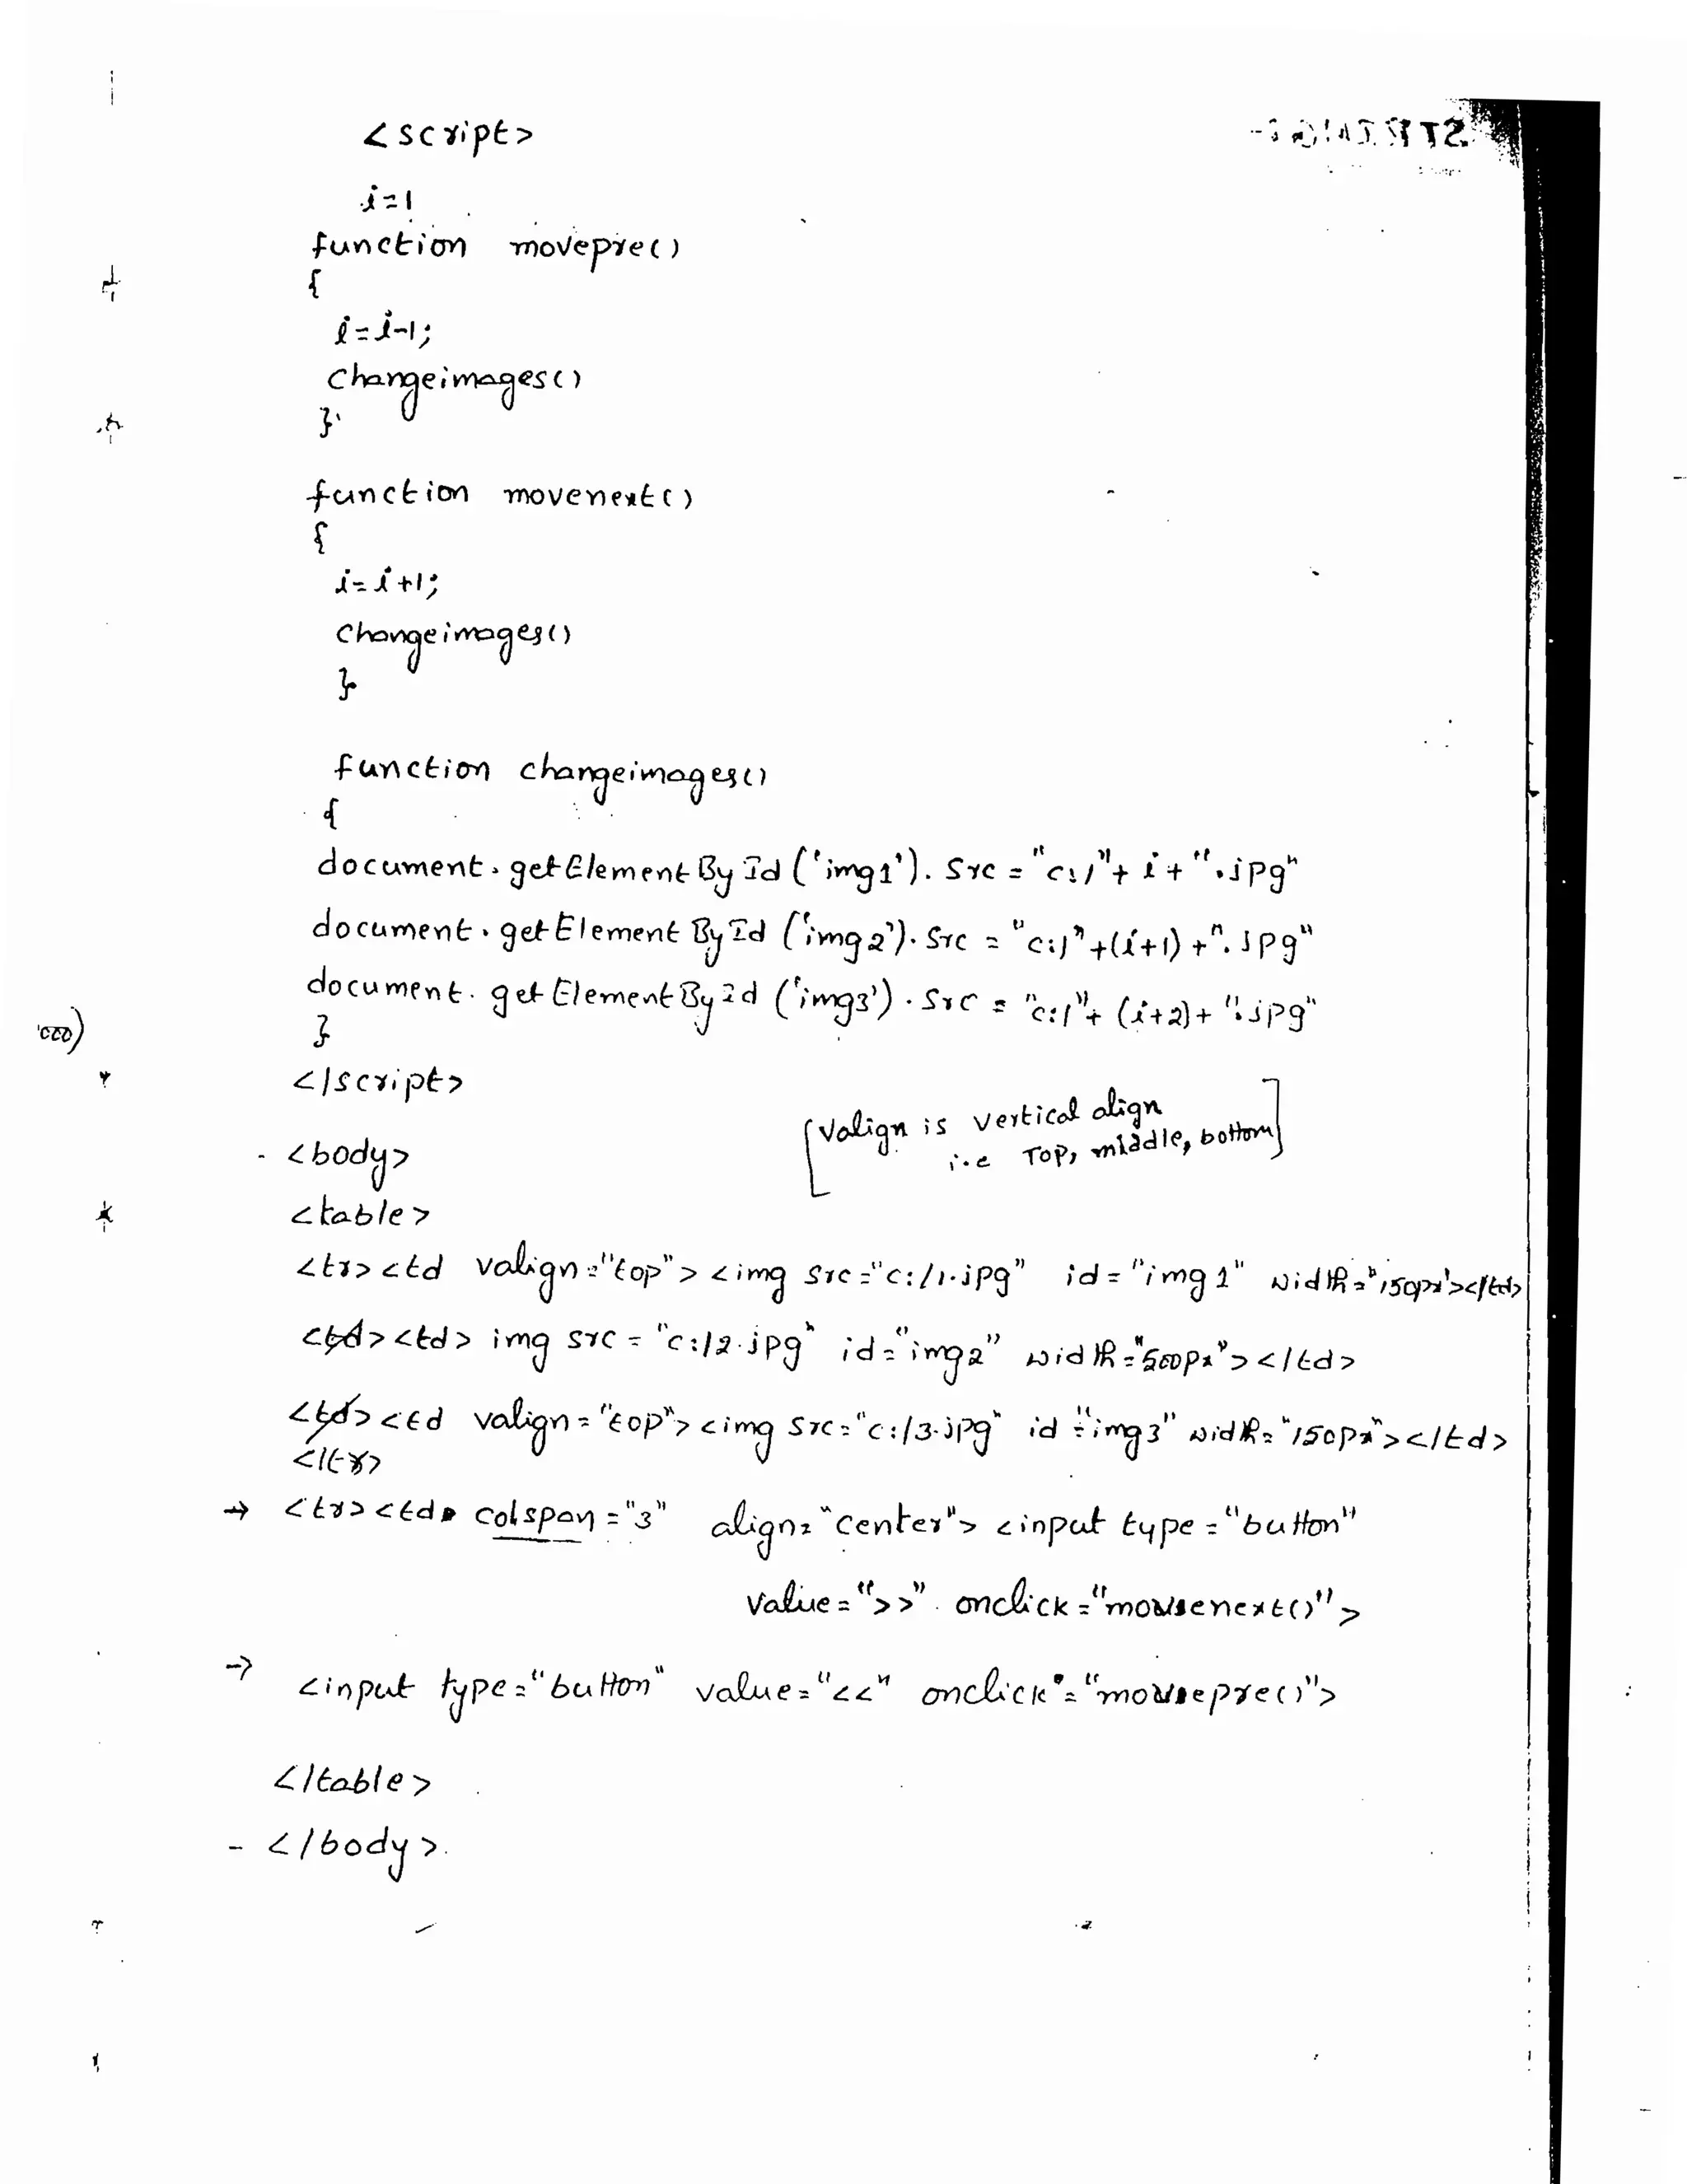 <script>
i=1
function movepre()
{
i=i-1;
Changeimages()
}
function movenext()
{
i=i+1;
Changeimages()
}
function changeimages()
{
document.getElementById('img1').src = "c:/"+ i + ".jpg"
document.getElementById('img2').src = "c:/"+(i+1) +".jpg"
document.getElementById('img3').src = "c:/"+ (i+2)+ ".jpg"
}
</script>
[Valign is vertical align
i.e Top, middle, bottom]
<body>
<table>
<tr><td valign="top"> <img src="c:/1.jpg" id="img1" width="150px"></td>
<td> img src = "c:/2.jpg" id="img2" width="500px"></td>
<td valign="top"> <img src="c:/3.jpg" id="img3" width="150px"></td>
</tr>
→ <tr><td colspan="3" align="center"> <input type="button"
value=">>" onclick="movenext()">
→ <input type="button" value="<<" onclick="movepre()">
</table>
- </body>